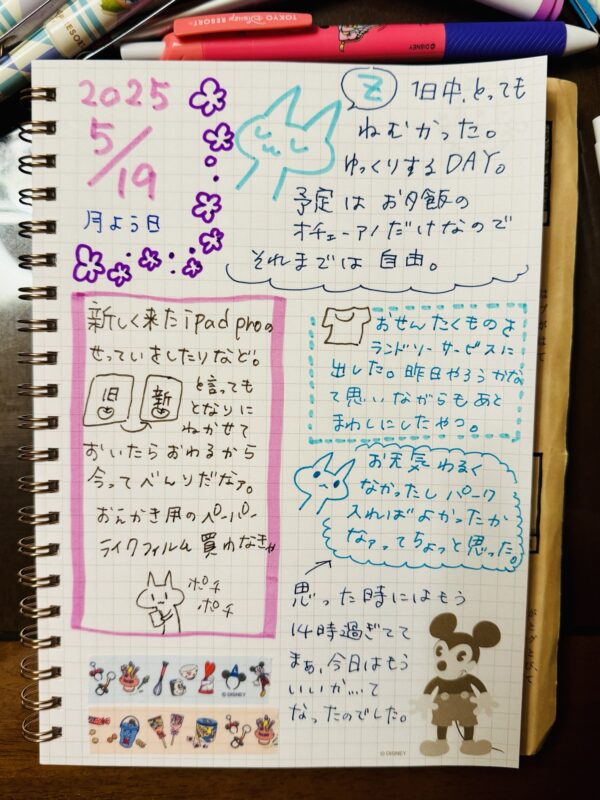 TOKYO DISNEY RESORT
RESORT
© DISNEY
2025
5/19
月よう日
Z
1日中、とっても
ねむかった。
ゆっくりするDAY。
予定は お夕飯の
オチェーアノだけなので
それまでは 自由。
新しく来たiPad proの
せっていをしたりなど。
旧
新
と言っても
となりに
ねかせて
おいたらおわるから
今ってべんりだなァ。
おえかき用のペーパー
ライクフィルム買わなきゃ
ポチ
ポチ
おせんたくものを
ランドリーサービスに
出した。昨日やろうかな
て思いながらもあと
まわしにしたやつ。
お天気わるく
なかったし パーク
入ればよかったか
なァってちょっと思った。
思った時にはもう
14時過ぎてて
まぁ、今日はもう
いいか...て
なったのでした。
© DISNEY
© DISNEY